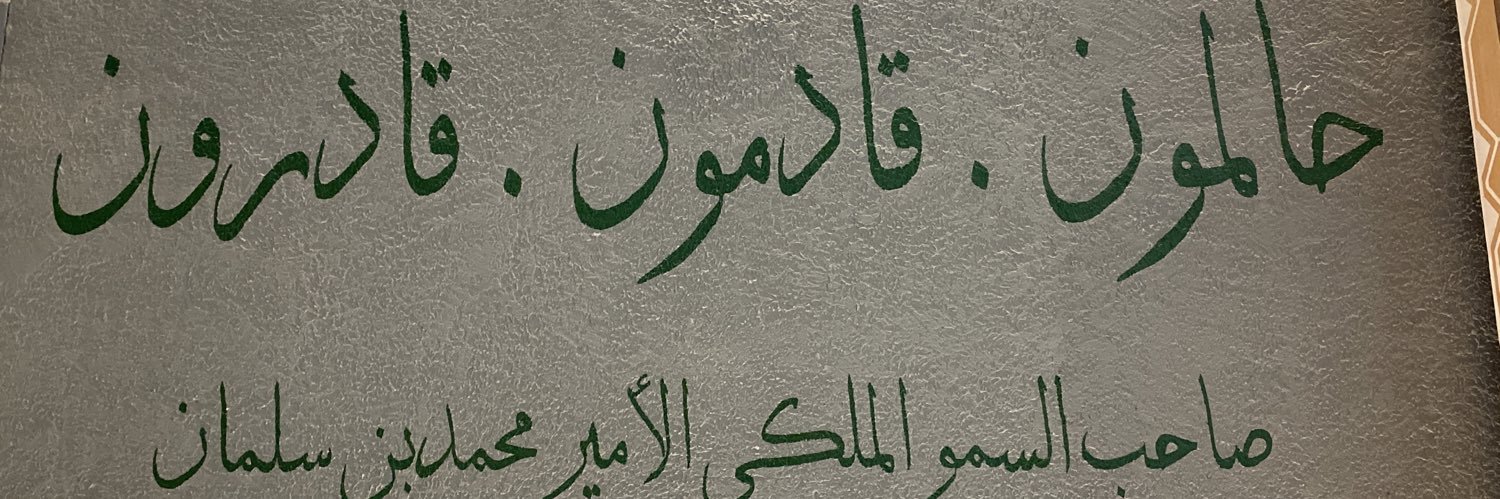 حالمون . قادمون . قادرون
صاحب السمو الملكي الأمير محمد بن سلمان